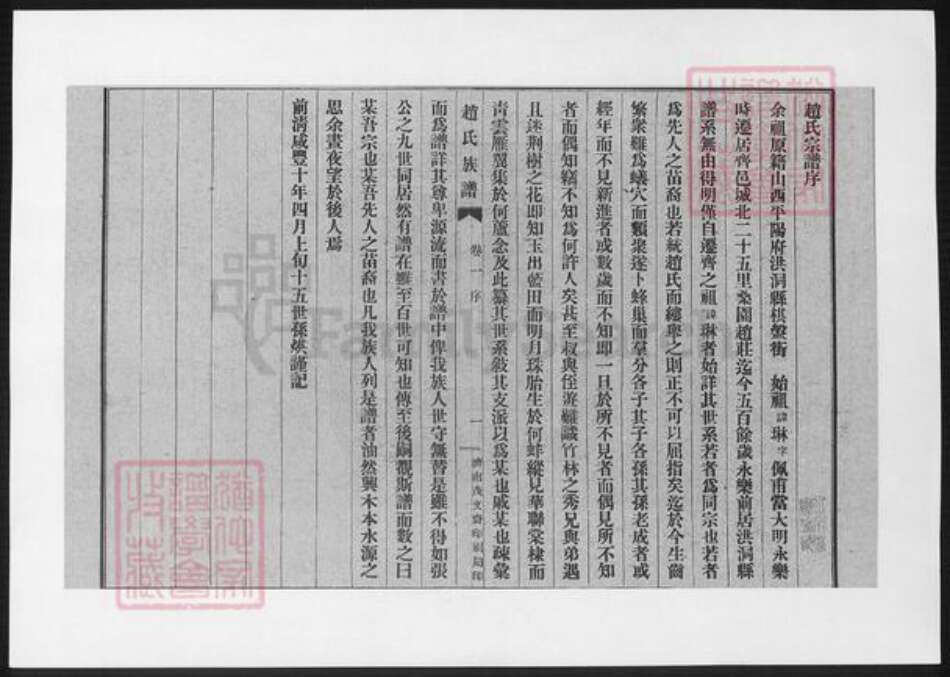 趙氏宗譜序
余祖原籍山西平陽府洪洞縣棋盤街 始祖諱琳字佩甫當大明永樂
時遷居齊邑城北二十五里桑園趙莊迄今五百餘歲永樂前居洪洞縣
譜系無由得明僅自遷齊之祖諱琳者始詳其世系若者為同宗也若者
為先人之苗裔也若統趙氏而縷舉之則正不可以屈指矣迄於今生齒
繁衆雖為蟻穴而類聚遂卜蜂巢而羣分各子其子各孫其孫老成者或
經年而不見新進者或數歲而不知即一旦於所不見者而偶見所不知
者而偶知竊不知為何許人矣甚至叔與侄遊難識竹林之秀兄與弟遇
且迷荆樹之花即知玉出藍田而明月珠胎生於何蚌縱見華聯棠棣而
青雲雁翼集於何蘆念及此纂其世系敍其支派以為某也戚某也疎彙
趙氏族譜 卷一 序 一 濟南茂文齋印刷局印
而為譜詳其尊卑源流而書於譜中俾我族人世守無替是雖不得如張
公之九世同居然有譜在雖至百世可知也傳至後嗣覩斯譜而數之曰
某吾宗也某吾先人之苗裔也凡我族人列是譜者油然興木本水源之
思余晝夜望於後人焉
前清咸豐十年四月上旬十五世孫煐謹記
FamilySearch